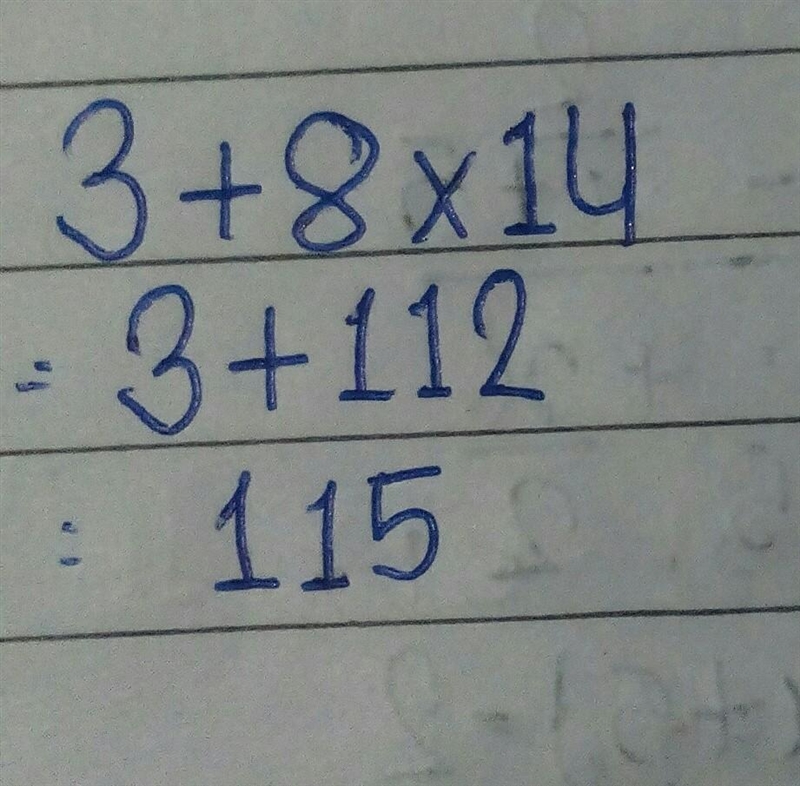 3+8×14
= 3+112
= 115